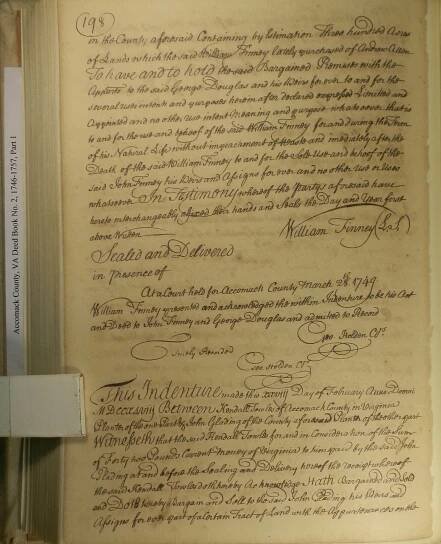 198
in the County aforesaid Containing by Estimation Three hundred Acres
of Lands which the said William Finney lately purchased of Andrew Allen
To have and to hold the said Bargained Premises with the
Appurts to the said George Douglas and his Heirs for ever to and for the
several uses intents and purposes herein after declared expressed Limited and
Appointed and no other use intent Meaning and purpose whatsoever that is
to and for the use and behoof of the said William Finney for and during the Term
of his Natural Life without impeachment of Waste and imediately after the
Death of the said William Finney to and for the sole Use and behoof of the
said John Finney his Heirs and Assigns for ever and no other use or Uses
whatsoever In Testimony whereof the Partys aforesaid have
hereto interchangeably afixed their hands and Seals the Day and Year first
above Written
William Finney (L.S.)
Sealed and Delivered
in presence of
At a Court held for Accomack County March 28th 1749
William Finney presented and acknowledged the within Indenture to be his Act
and Deed to John Finney and George Douglas and admited to Record
Geo Holden Clk.
Truely Recorded
Geo Holden Clk.
This Indenture made this xxviij Day of February Anno Domini
MDCCXLVIIIJ Between Kendall Towles of Accomack County in Virginia
Planter of the one Part & John Glading of the County aforesaid Planter of the other part
Witnesseth that the said Kendall Towles for and in Consideration of the Sum
of Forty two Pounds Current Money of Virginia to him paid by the said John
Glading at and before the Sealing and Delivery hereof the receipt whereof
the said Kendall Towles doth hereby Acknowledge Hath Bargained and Sold
and Doth hereby Bargain and Sell to the said John Glading his Heirs and
Assigns for ever part of a Certain Tract of Land with the Appurtenances on the
Accomack County, VA Deed Book No. 2, 1746-1757, Part 1